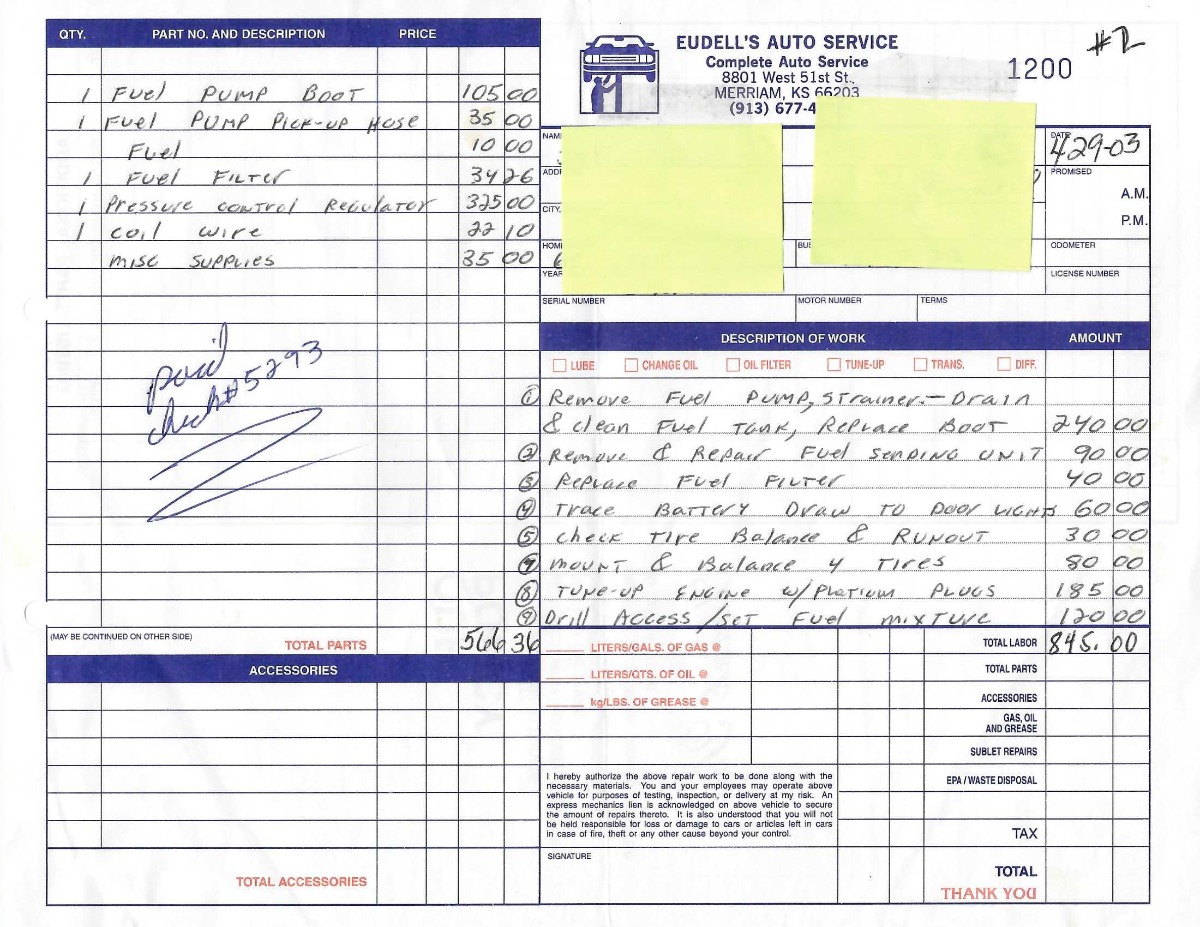 QTY. PART NO. AND DESCRIPTION PRICE
1 Fuel PUMP BOOT 105 00
1 Fuel PUMP PICK-UP HOSE 35 00
Fuel 10 00
1 Fuel FILTER 34 26
1 Pressure control Regulator 325 00
1 coil wire 22 10
misc supplies 35 00
paid
check #5293
(MAY BE CONTINUED ON OTHER SIDE)
TOTAL PARTS 566 36
ACCESSORIES
TOTAL ACCESSORIES
EUDELL'S AUTO SERVICE
Complete Auto Service
8801 West 51st St.
MERRIAM, KS 66203
(913) 677-4
#2
1200
NAM
DATE 4-29-03
ADD
PROMISED
A.M.
CITY,
P.M.
HOM
BUS
ODOMETER
YEAR
LICENSE NUMBER
SERIAL NUMBER MOTOR NUMBER TERMS
DESCRIPTION OF WORK AMOUNT
LUBE CHANGE OIL OIL FILTER TUNE-UP TRANS. DIFF.
① Remove Fuel PUMP, STrainer - Drain
& clean Fuel TANK, Replace BOOT 240 00
② Remove & Repair Fuel SENDING UNIT 90 00
③ Replace Fuel FILTER 40 00
④ Trace BATTERY Draw TO Door LIGHTS 60 00
⑤ check Tire Balance & RUNOUT 30 00
⑦ mount & Balance 4 Tires 80 00
⑧ TUNE-UP ENGINE w/Platium PLUGS 185 00
⑨ Drill Access/set Fuel mixture 120 00
LITERS/GALS. OF GAS @
TOTAL LABOR 845.00
LITERS/QTS. OF OIL @
TOTAL PARTS
kg/LBS. OF GREASE @
ACCESSORIES
GAS, OIL
AND GREASE
SUBLET REPAIRS
I hereby authorize the above repair work to be done along with the
necessary materials. You and your employees may operate above
vehicle for purposes of testing, inspection, or delivery at my risk. An
express mechanics lien is acknowledged on above vehicle to secure
the amount of repairs thereto. It is also understood that you will not
be held responsible for loss or damage to cars or articles left in cars
in case of fire, theft or any other cause beyond your control.
EPA / WASTE DISPOSAL
TAX
SIGNATURE
TOTAL
THANK YOU